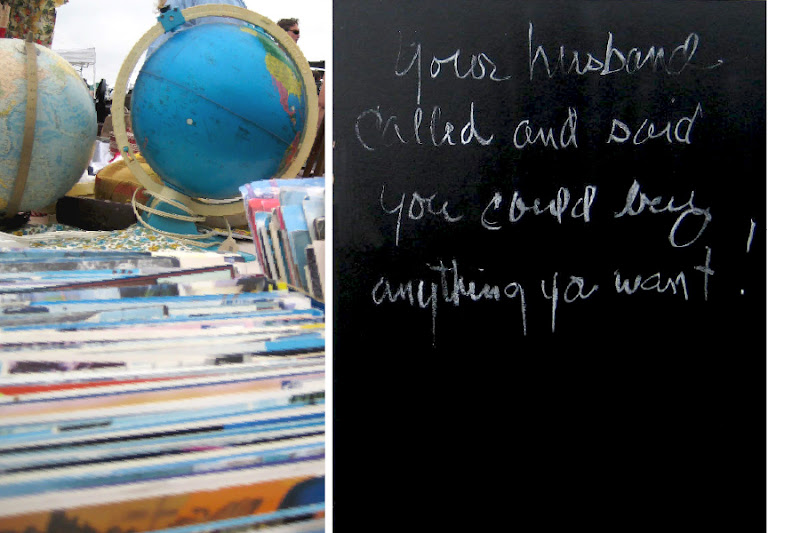 your husband
called and said
you could buy
anything ya want!